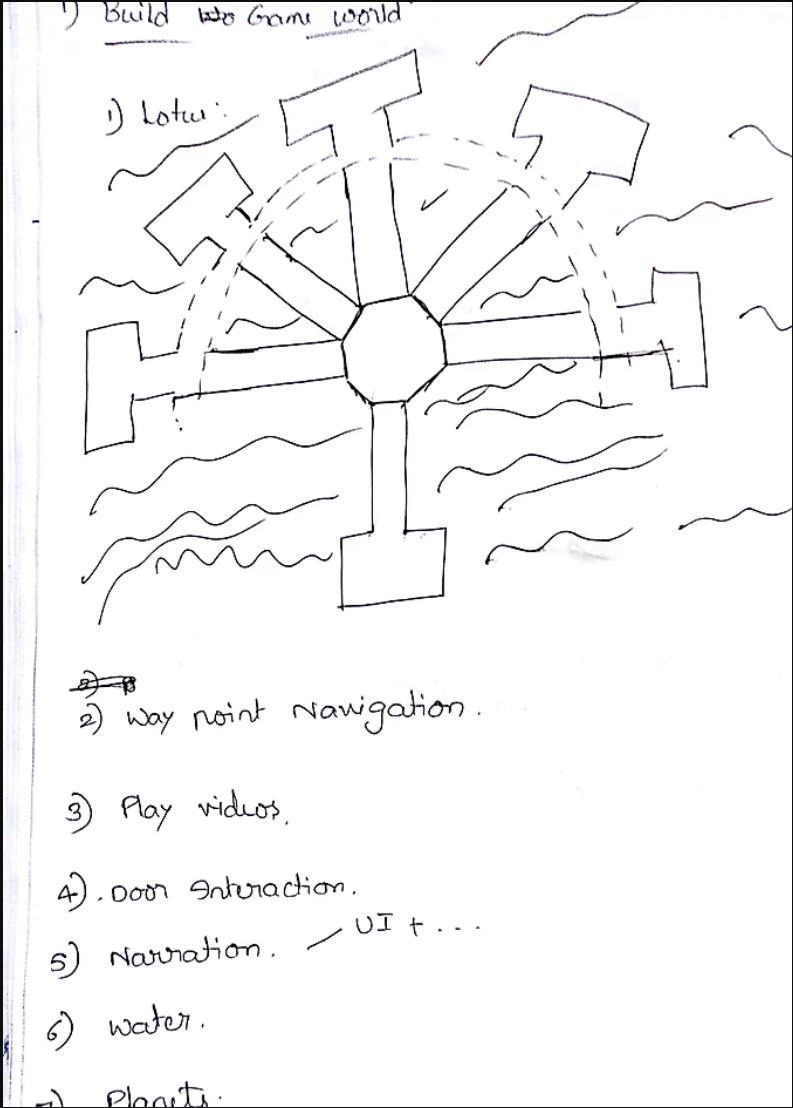 1) Build Game world
1) Lotus:
2) Way point Navigation.
3) Play videos.
4). Door Interaction.
UI + ...
5) Narration.
6) Water.
7) Planets.